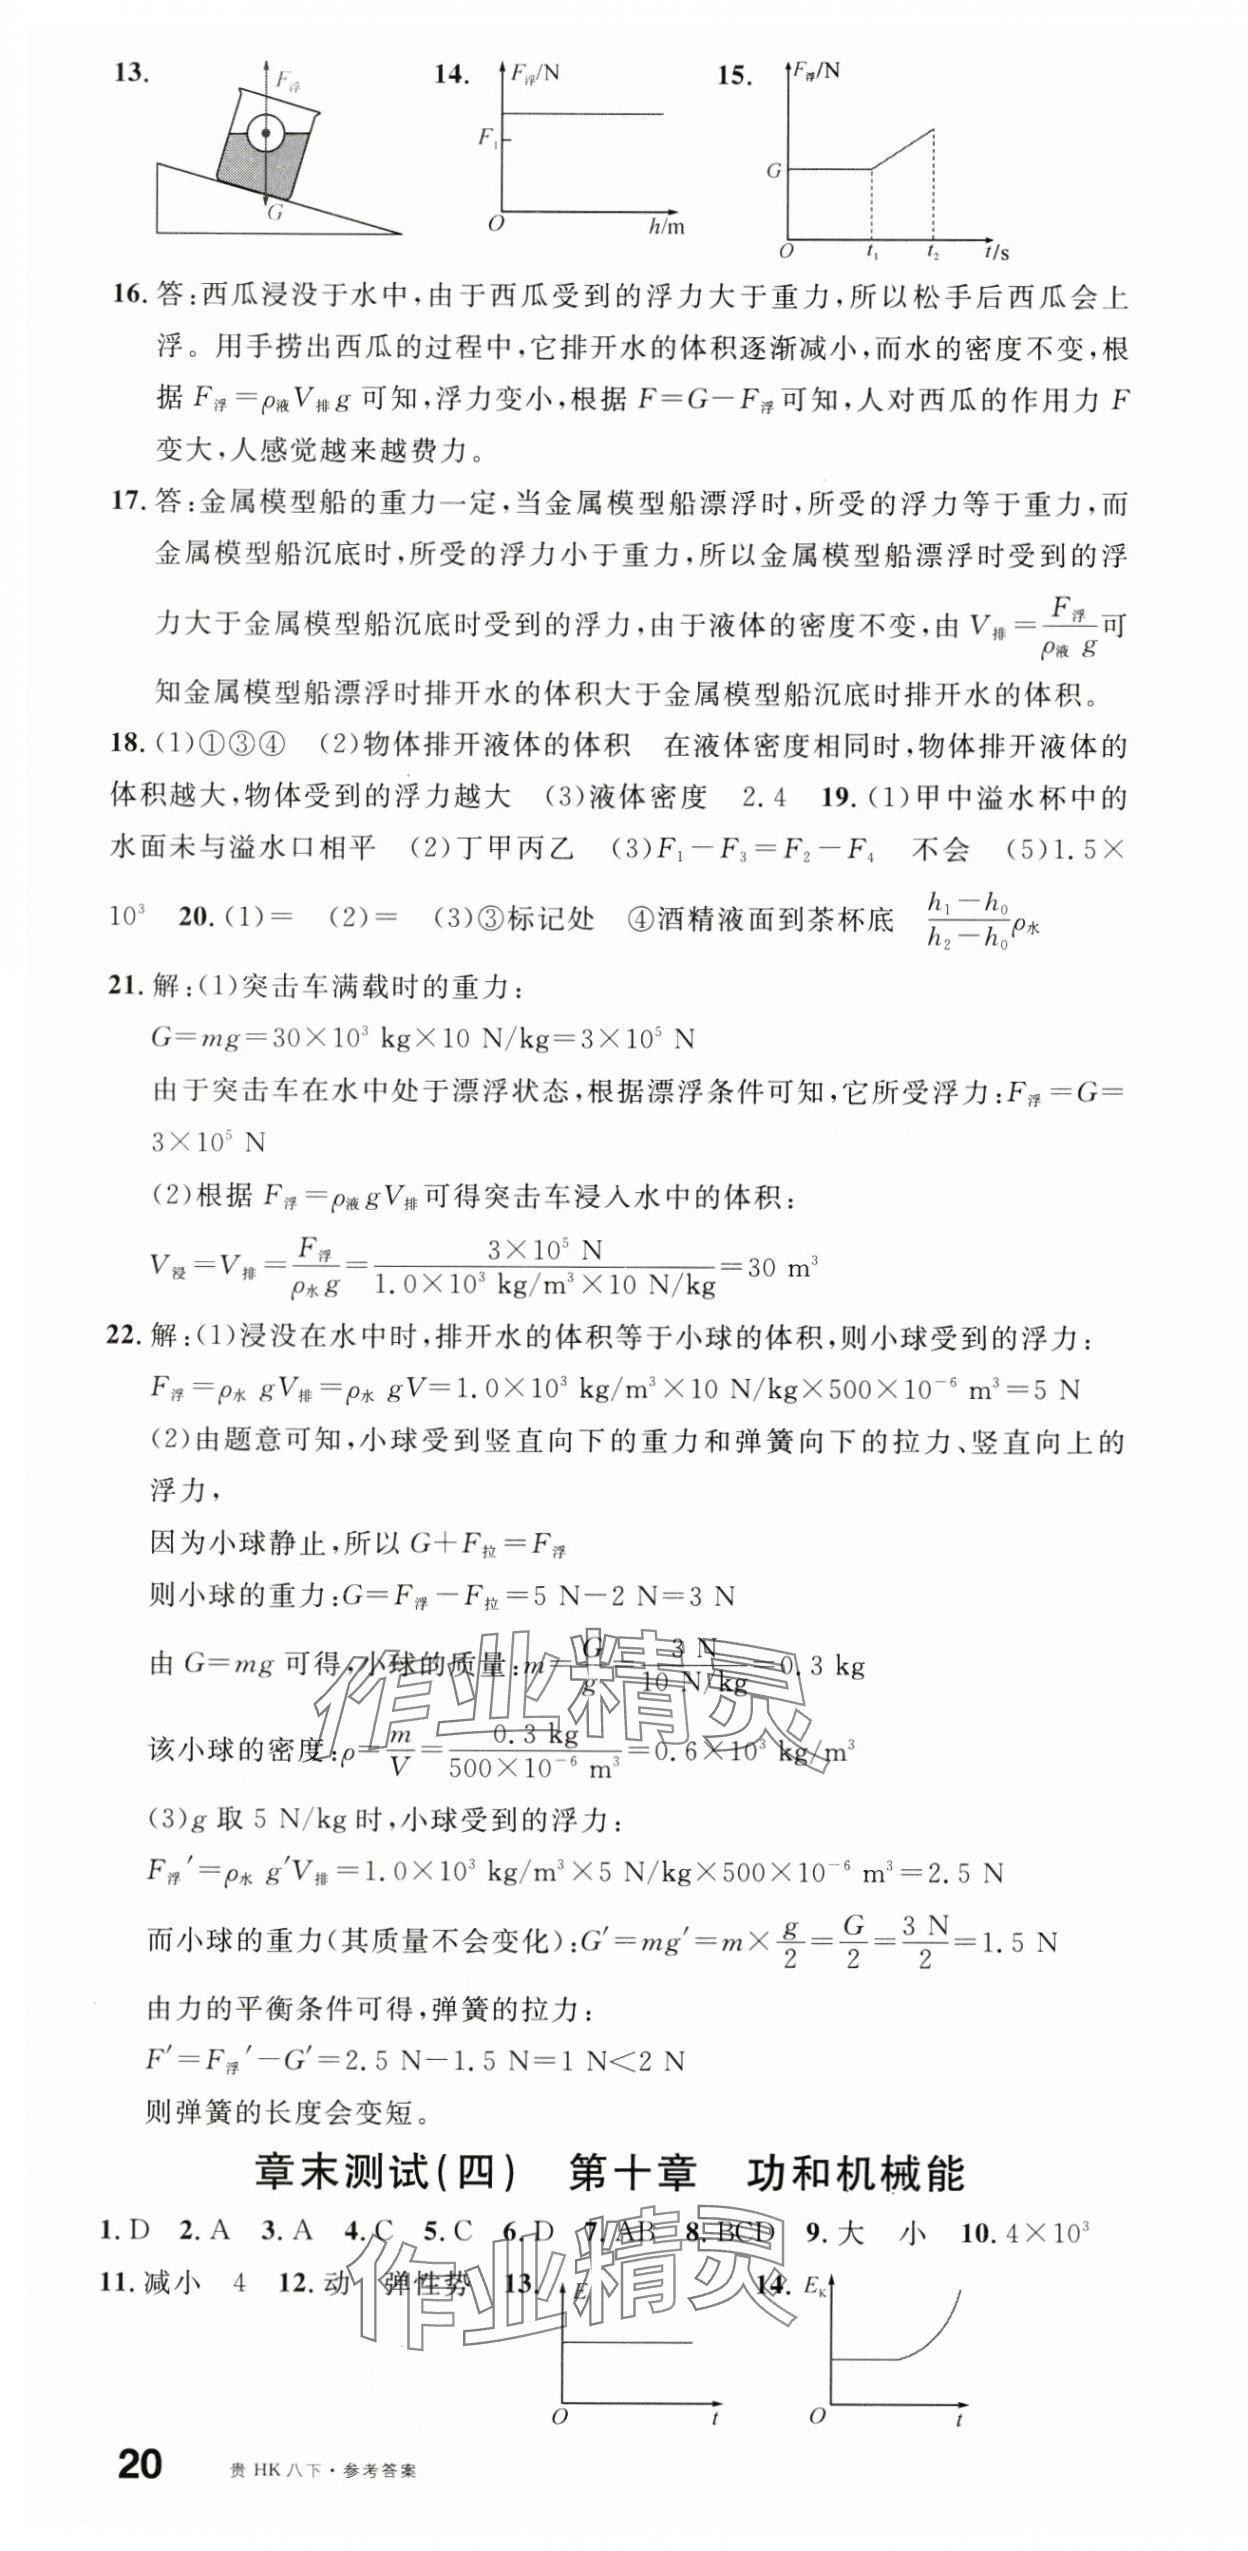 13.
F浮
G
14.
F浮/N
F₁
O
h/m
15.
F浮/N
G
O
t₁
t₂
t/s
16. 答:西瓜浸没于水中,由于西瓜受到的浮力大于重力,所以松手后西瓜会上
浮。用手捞出西瓜的过程中,它排开水的体积逐渐减小,而水的密度不变,根
据 F浮=ρ液V排g 可知,浮力变小,根据 F=G-F浮可知,人对西瓜的作用力 F
变大,人感觉越来越费力。
17. 答:金属模型船的重力一定,当金属模型船漂浮时,所受的浮力等于重力,而
金属模型船沉底时,所受的浮力小于重力,所以金属模型船漂浮时受到的浮
力大于金属模型船沉底时受到的浮力,由于液体的密度不变,由 V排=F浮/(ρ液 g)可
知金属模型船漂浮时排开水的体积大于金属模型船沉底时排开水的体积。
18. (1)①③④ (2)物体排开液体的体积 在液体密度相同时,物体排开液体的
体积越大,物体受到的浮力越大 (3)液体密度 2.4 19. (1)甲中溢水杯中的
水面未与溢水口相平 (2)丁甲丙乙 (3)F₁-F₃=F₂-F₄ 不会 (5)1.5×
10³ 20. (1)= (2)= (3)③标记处 ④酒精液面到茶杯底 (h₁-h₀)/(h₂-h₀)ρ水
21. 解:(1)突击车满载时的重力:
G=mg=30×10³ kg×10 N/kg=3×10⁵ N
由于突击车在水中处于漂浮状态,根据漂浮条件可知,它所受浮力:F浮=G=
3×10⁵ N
(2)根据 F浮=ρ液gV排可得突击车浸入水中的体积:
V浸=V排=F浮/(ρ水g)=3×10⁵ N/(1.0×10³ kg/m³×10 N/kg)=30 m³
22. 解:(1)浸没在水中时,排开水的体积等于小球的体积,则小球受到的浮力:
F浮=ρ水 gV排=ρ水 gV=1.0×10³ kg/m³×10 N/kg×500×10⁻⁶ m³=5 N
(2)由题意可知,小球受到竖直向下的重力和弹簧向下的拉力、竖直向上的
浮力,
因为小球静止,所以 G+F拉=F浮
则小球的重力:G=F浮-F拉=5 N-2 N=3 N
由 G=mg 可得,小球的质量:m=G/g=3 N/(10 N/kg)=0.3 kg
该小球的密度:ρ=m/V=0.3 kg/(500×10⁻⁶ m³)=0.6×10³ kg/m³
(3)g 取 5 N/kg 时,小球受到的浮力:
F浮′=ρ水 g′V排=1.0×10³ kg/m³×5 N/kg×500×10⁻⁶ m³=2.5 N
而小球的重力(其质量不会变化):G′=mg′=m×g/2=G/2=3 N/2=1.5 N
由力的平衡条件可得,弹簧的拉力:
F′=F浮′-G′=2.5 N-1.5 N=1 N<2 N
则弹簧的长度会变短。
作业精灵
章末测试(四) 第十章 功和机械能
1. D 2. A 3. A 4. C 5. C 6. D 7. AB 8. BCD 9. 大 小 10. 4×10³
11. 减小 4 12. 动 弹性势 13.
E
O
t
14.
E_K
O
t
作业精灵
20 贵 HK 八下·参考答案